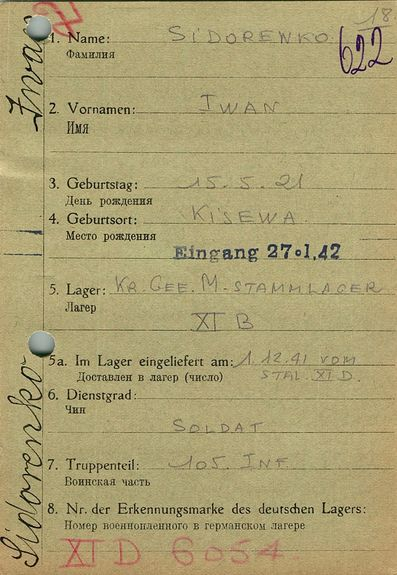 18.
622
Sidorenko Iwan
1. Name: SIDORENKO.
Фамилия
2. Vornamen: IWAN
Имя
3. Geburtstag: 15. 5. 21
День рождения
4. Geburtsort: KISEWA.
Место рождения
Eingang 27.1.42
5. Lager: KR. GEE. M-STAMMLAGER
Лагер
XI B
5a. Im Lager eingeliefert am: 1.12.41 VOM
Доставлен в лагер (число) STAL. XI D.
6. Dienstgrad:
Чин
SOLDAT
7. Truppenteil: 105. INF
Воинская часть
8. Nr. der Erkennungsmarke des deutschen Lagers:
Номер военнопленного в германском лагере
XI D 6054.